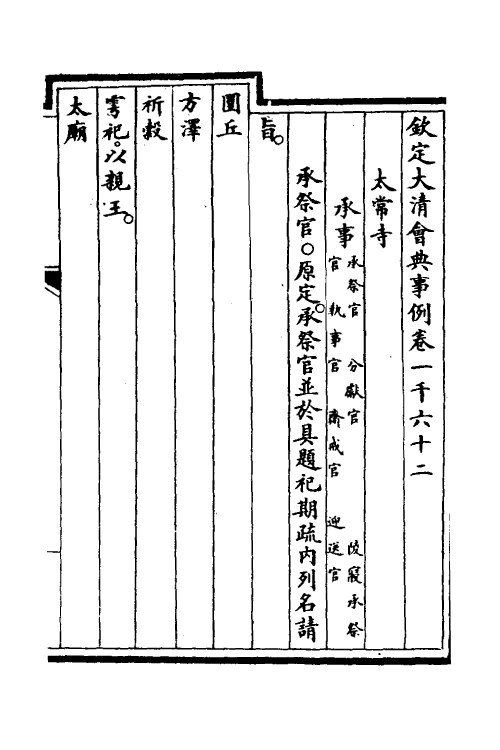 欽定大清會典事例卷一千六十二
太常寺
承事
承祭官 分獻官 陵寢承祭
官 執事官 齋戒官 迎送官
承祭官○原定。承祭官並於具題祀期疏内列名請
旨。
圜丘
方澤
祈穀
雩祀。以親王。
太廟